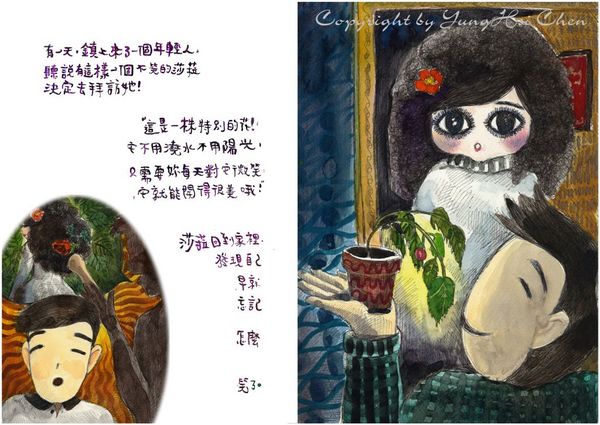 有一天，鎮上來了一個年輕人，
聽說有這樣一個不笑的莎菈
決定去拜訪她！
"這是一株特別的花！
它不用澆水不用陽光，
只需要妳每天對它微笑，
它就能開得很美哦！"
莎菈回到家裡
發現自己
早就
忘記
怎麼
笑了。
Copyright by YungHsi Chen